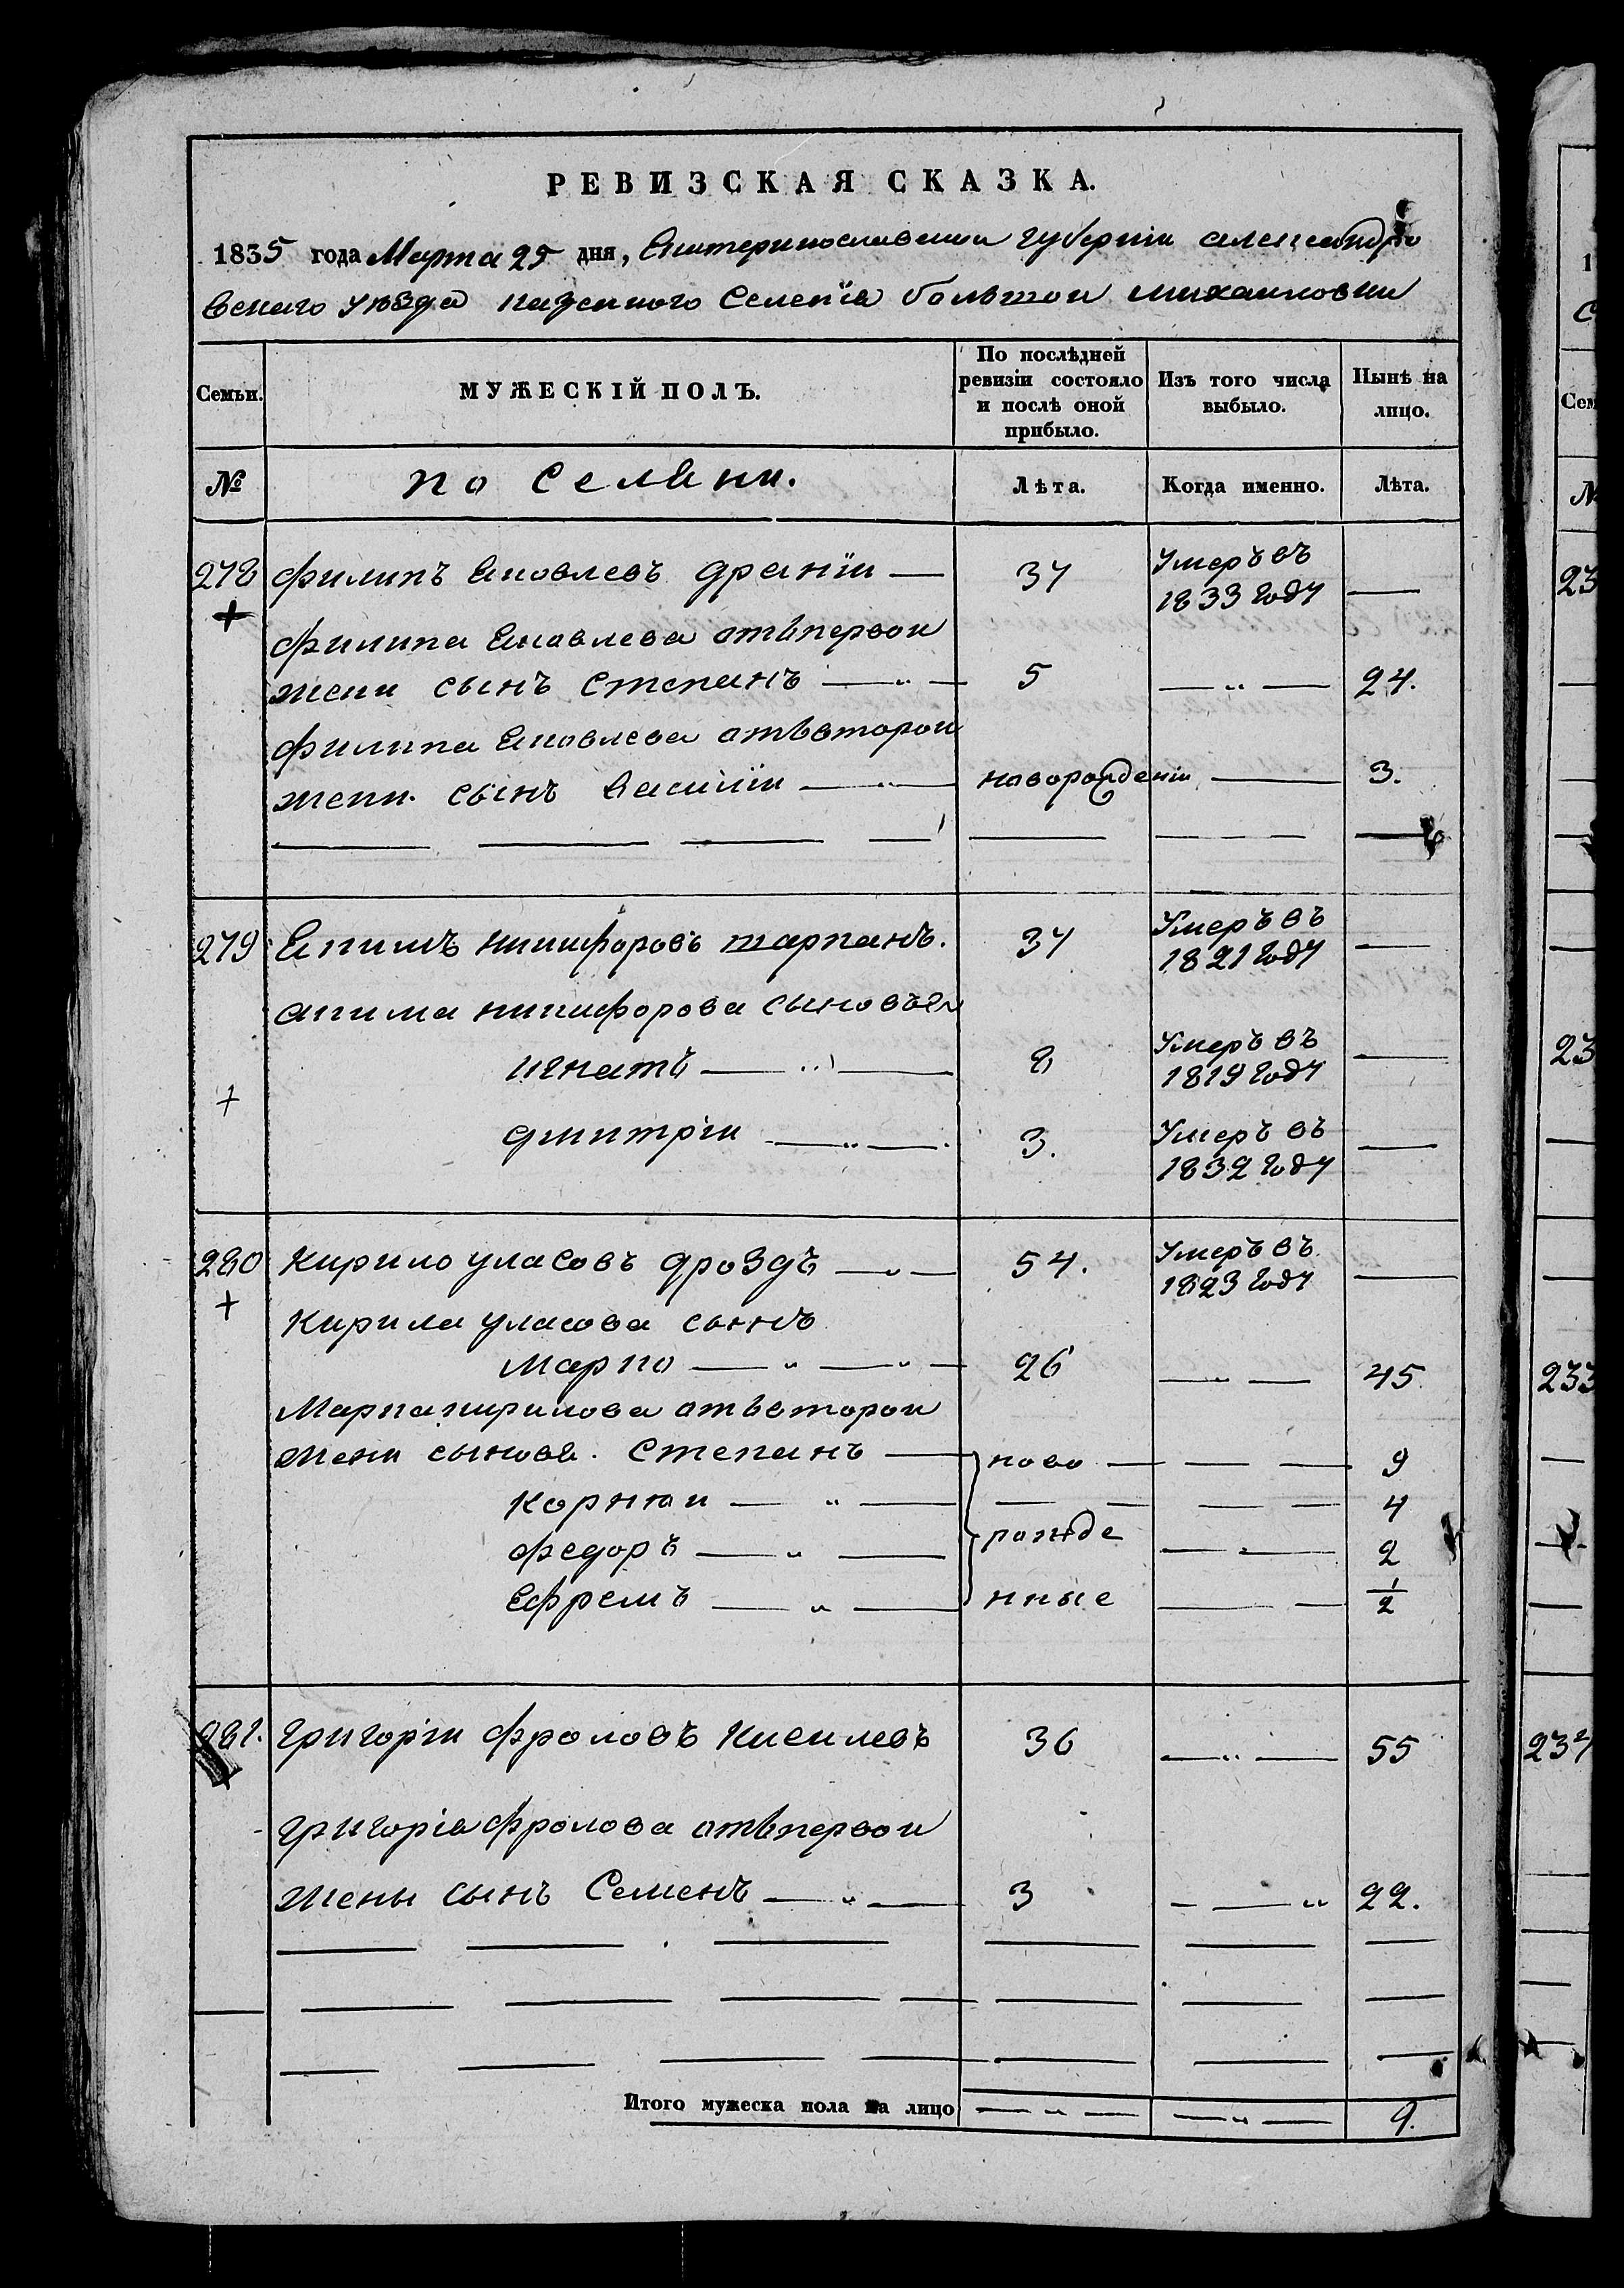 РЕВИЗСКАЯ СКАЗКА.
1835 года Марта 25 дня, Екатеринославскои губернiи александро
вскаго уѣзда казенного Селенiя большои михаиловки
Семьи. МУЖЕСКІЙ ПОЛЪ. По послѣдней ревизіи состояло и послѣ оной прибыло. Изъ того числа выбыло. Нынѣ на лицо.
№ Лѣта. Когда именно. Лѣта.
278 филипъ Яковлевъ 37 Умеръ въ 1833 году —
филипа Яковлева отъ первои
жени сынъ степанъ — 5 — 24.
филипа Яковлева отъ второи
жени. сынъ василiи — новорожденiи — 3.
279 Якимъ никифоровъ шарпанъ. 37 Умеръ въ 1821 году —
акима никифорова сыновъя
игнатъ — 8 Умеръ въ 1819 году —
дмитрiи — 3. Умеръ въ 1832 году —
280 кирило уласовъ дроздъ — 54. Умеръ въ 1823 году —
кирила уласова сынъ
марко — 26 — 45.
Марка кирилова отъ второи
жени сыновя. степанъ — ново — 9
корнюи — 4
федоръ — рожде — 2
Ефремъ — нные — 1/2
281. григорiи фроловъ киселевъ 36 — 55
григорiя фролова отъ первои
жены сынъ Семенъ — 3 — 22.
Итого мужеска пола на лицо — — 9.
23
23
233
234